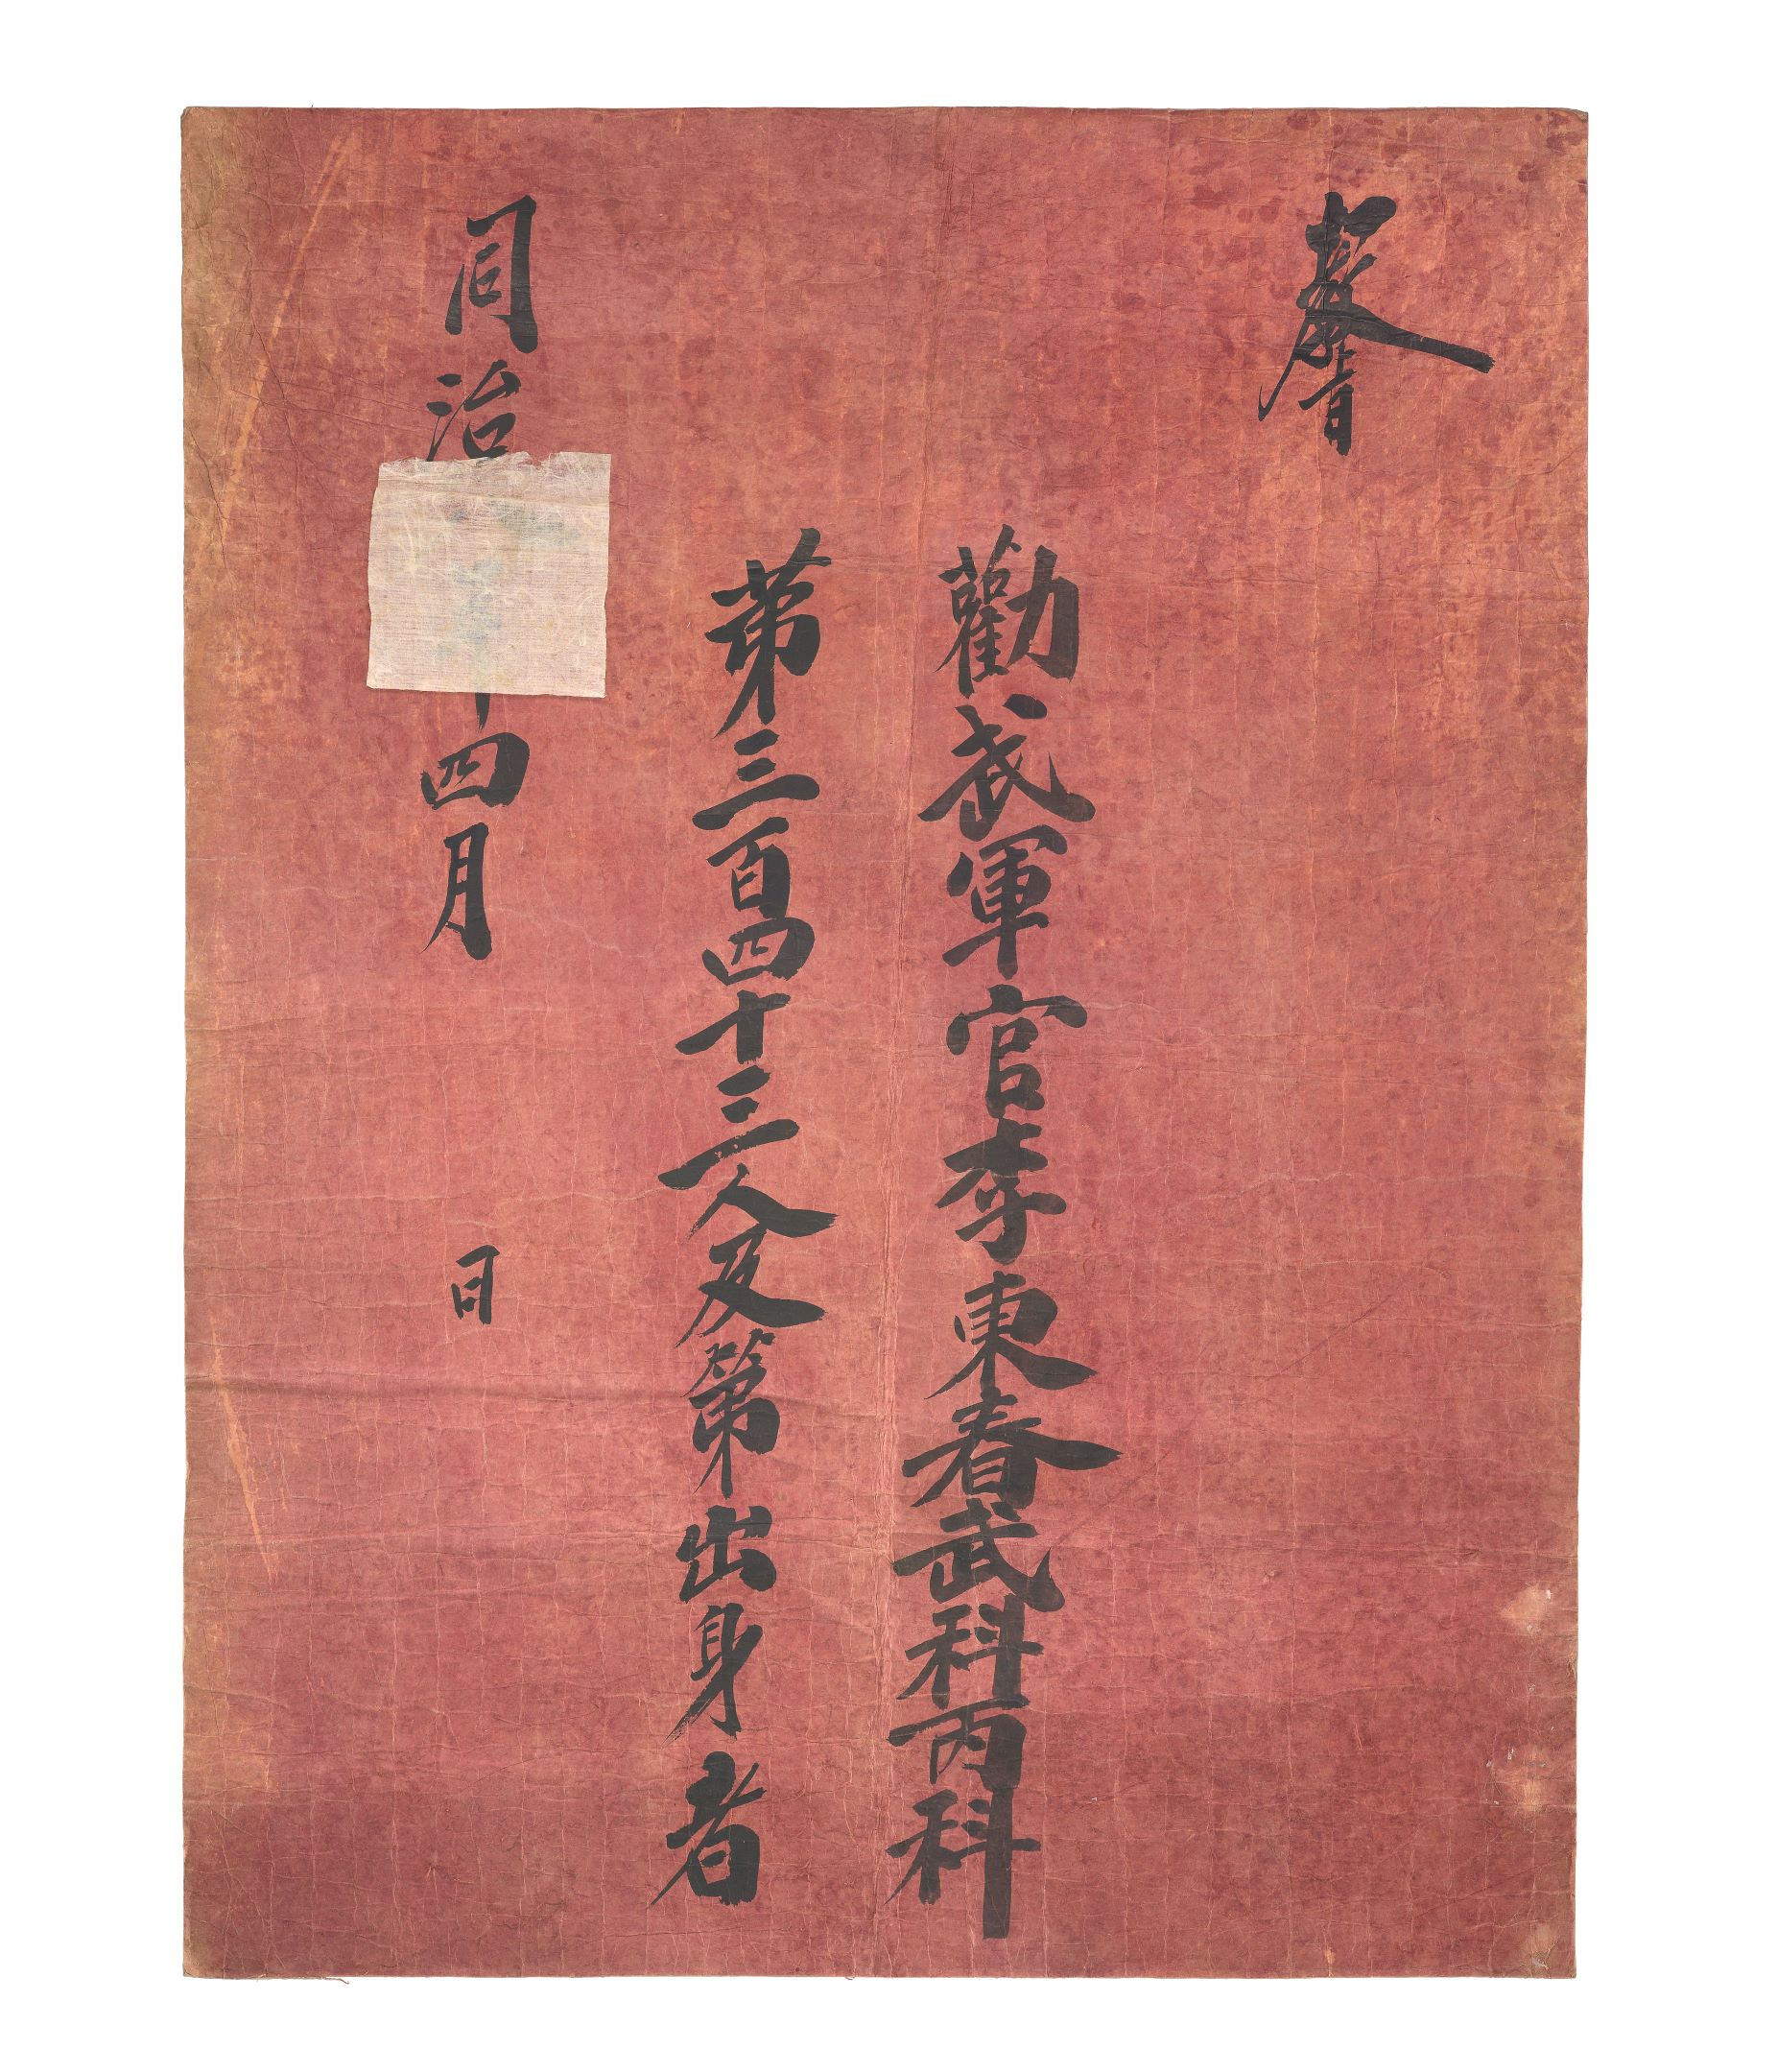 教旨
勸武軍官李東春武科丙科
第三百四十三人及第出身者
同治
年四月 日